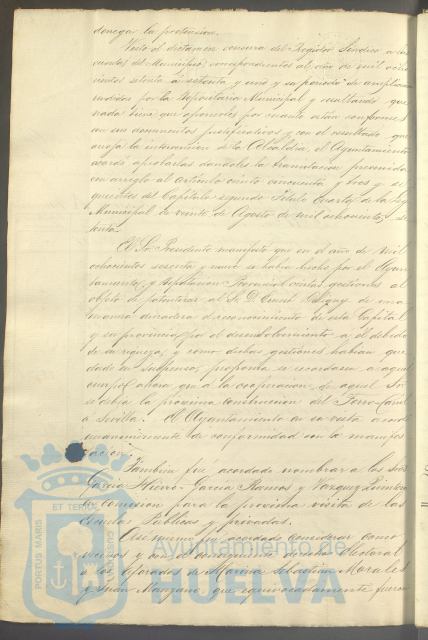 denegar la pretension.
Visto el dictamen censura del Regidor Síndico a las
cuentas del Municipio correspondientes al año de mil ocho
cientos setenta á setenta y uno y su periodo de ampliacion
rendidas por la Depositaria Municipal y resultando que
nada tiene que oponerles por cuanto estan conformes
con sus documentos justificativos y con el resultado que
arroja la intervencion de la Alcaldia, el Ayuntamiento
acordó aprobarlas dandoles la tramitacion prevenida
con arreglo al artículo ciento cincuenta y tres y si
guientes del Capitulo segundo Titulo cuarto de la Ley
Municipal de veinte de Agosto de mil ochocientos se
tenta.
El Sr. Presidente manifestó que en el año de mil
ochocientos sesenta y nueve se habia hecho por el Ayun
tamiento y Diputacion Provincial ciertas gestiones al
objeto de patentizar al Sr. D. de una
manera duradera el reconocimiento de esta Capital
y su provincia por el desenvolvimiento a él debido
de su riqueza, y como dichas gestiones habian que
dado en suspenso, proponia se recordasen a aquel
cuerpo ahora que a la cooperacion de aquel Sr.
se debia la proxima construccion del Ferro-Carril
a Sevilla. El Ayuntamiento en su vista acordó
unanimemente de conformidad con lo manifes
tado.
Tambien fue acordado nombrar a los Sres.
García Hierro - García Ramos y Vazquez
en Comision para la proxima visita de las
Escuelas Públicas y privadas.
Asimismo se acordó considerar como
vecinos y
a los aforados de Marina Sebastian Morales
y Juan Manzano, que equivocadamente fueron
PORTUS MARIS
ET TERRAE
CUSTODIA
Ayuntamiento de
HUELVA